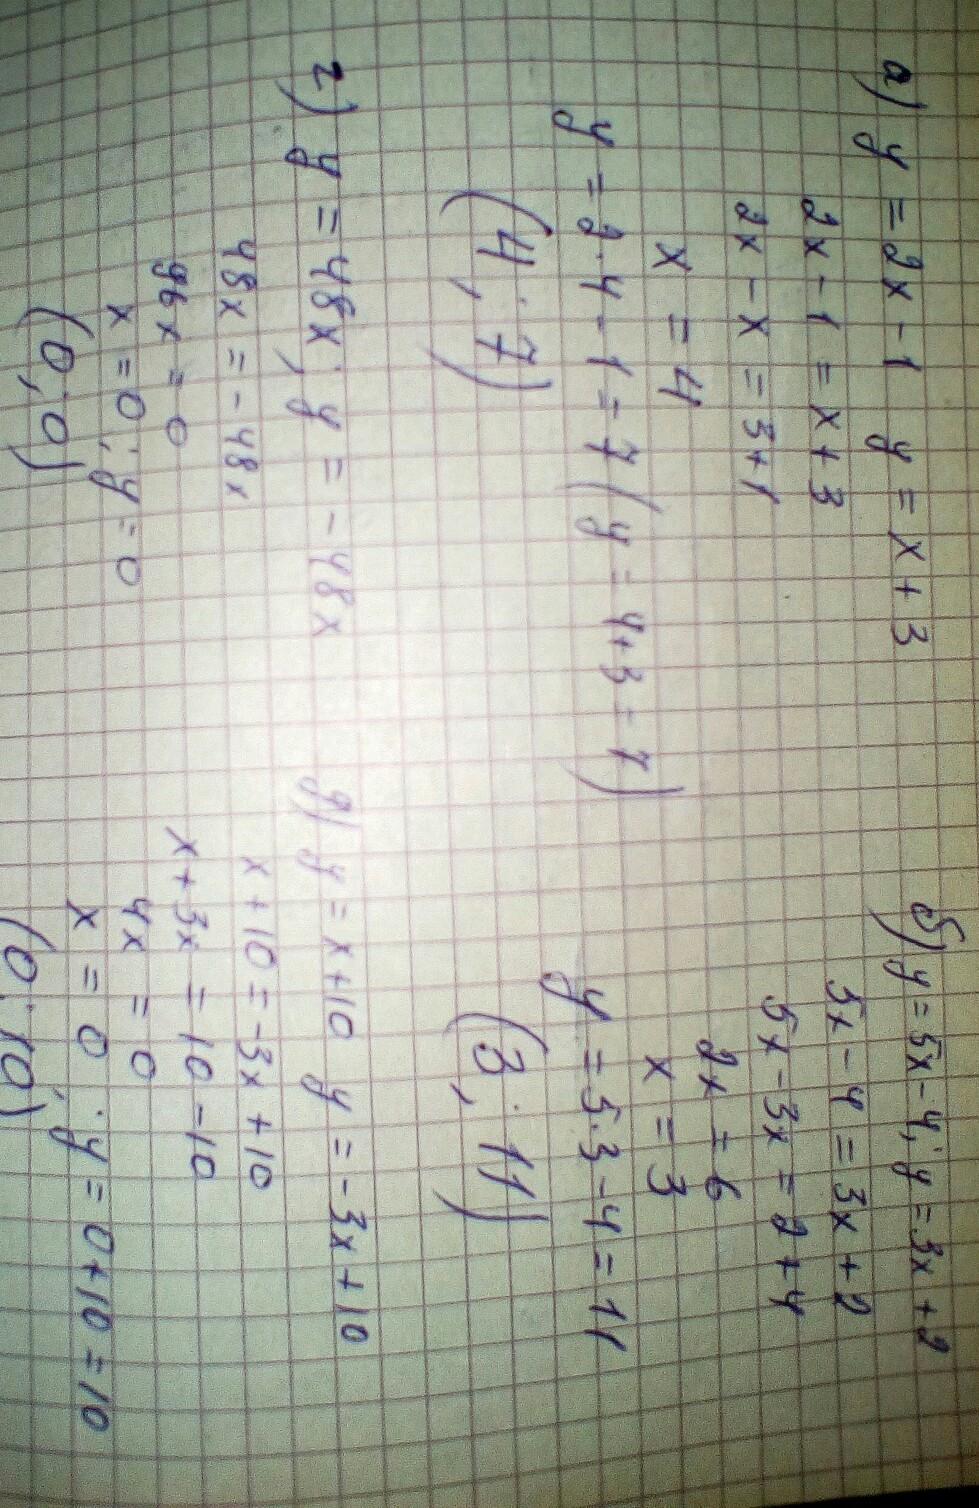 а) y = 2x - 1 y = x + 3
2x - 1 = x + 3
2x - x = 3+1
x = 4
y = 2·4 - 1 = 7 (y = 4+3 = 7)
(4; 7)
б) y = 5x - 4; y = 3x + 2
5x - 4 = 3x + 2
5x - 3x = 2 + 4
2x = 6
x = 3
y = 5·3 - 4 = 11
(3; 11)
г) y = 48x; y = -48x
48x = -48x
96x = 0
x = 0; y = 0
(0; 0)
д) y = x+10 y = -3x+10
x+10 = -3x+10
x+3x = 10-10
4x = 0
x = 0; y = 0+10 = 10
(0; 10)